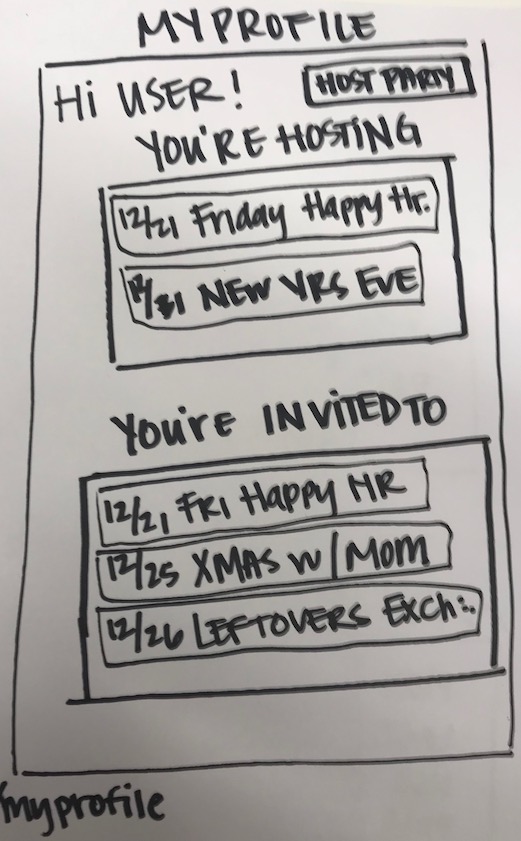 MY PROFILE
Hi USER!
HOST PARTY
YOU'RE HOSTING
12/21 Friday Happy Hr.
12/31 NEW YRS EVE
You're INVITED TO
12/21 FRI Happy HR
12/25 XMAS w/Mom
12/26 LEFTOVERS Exch:.
/myprofile